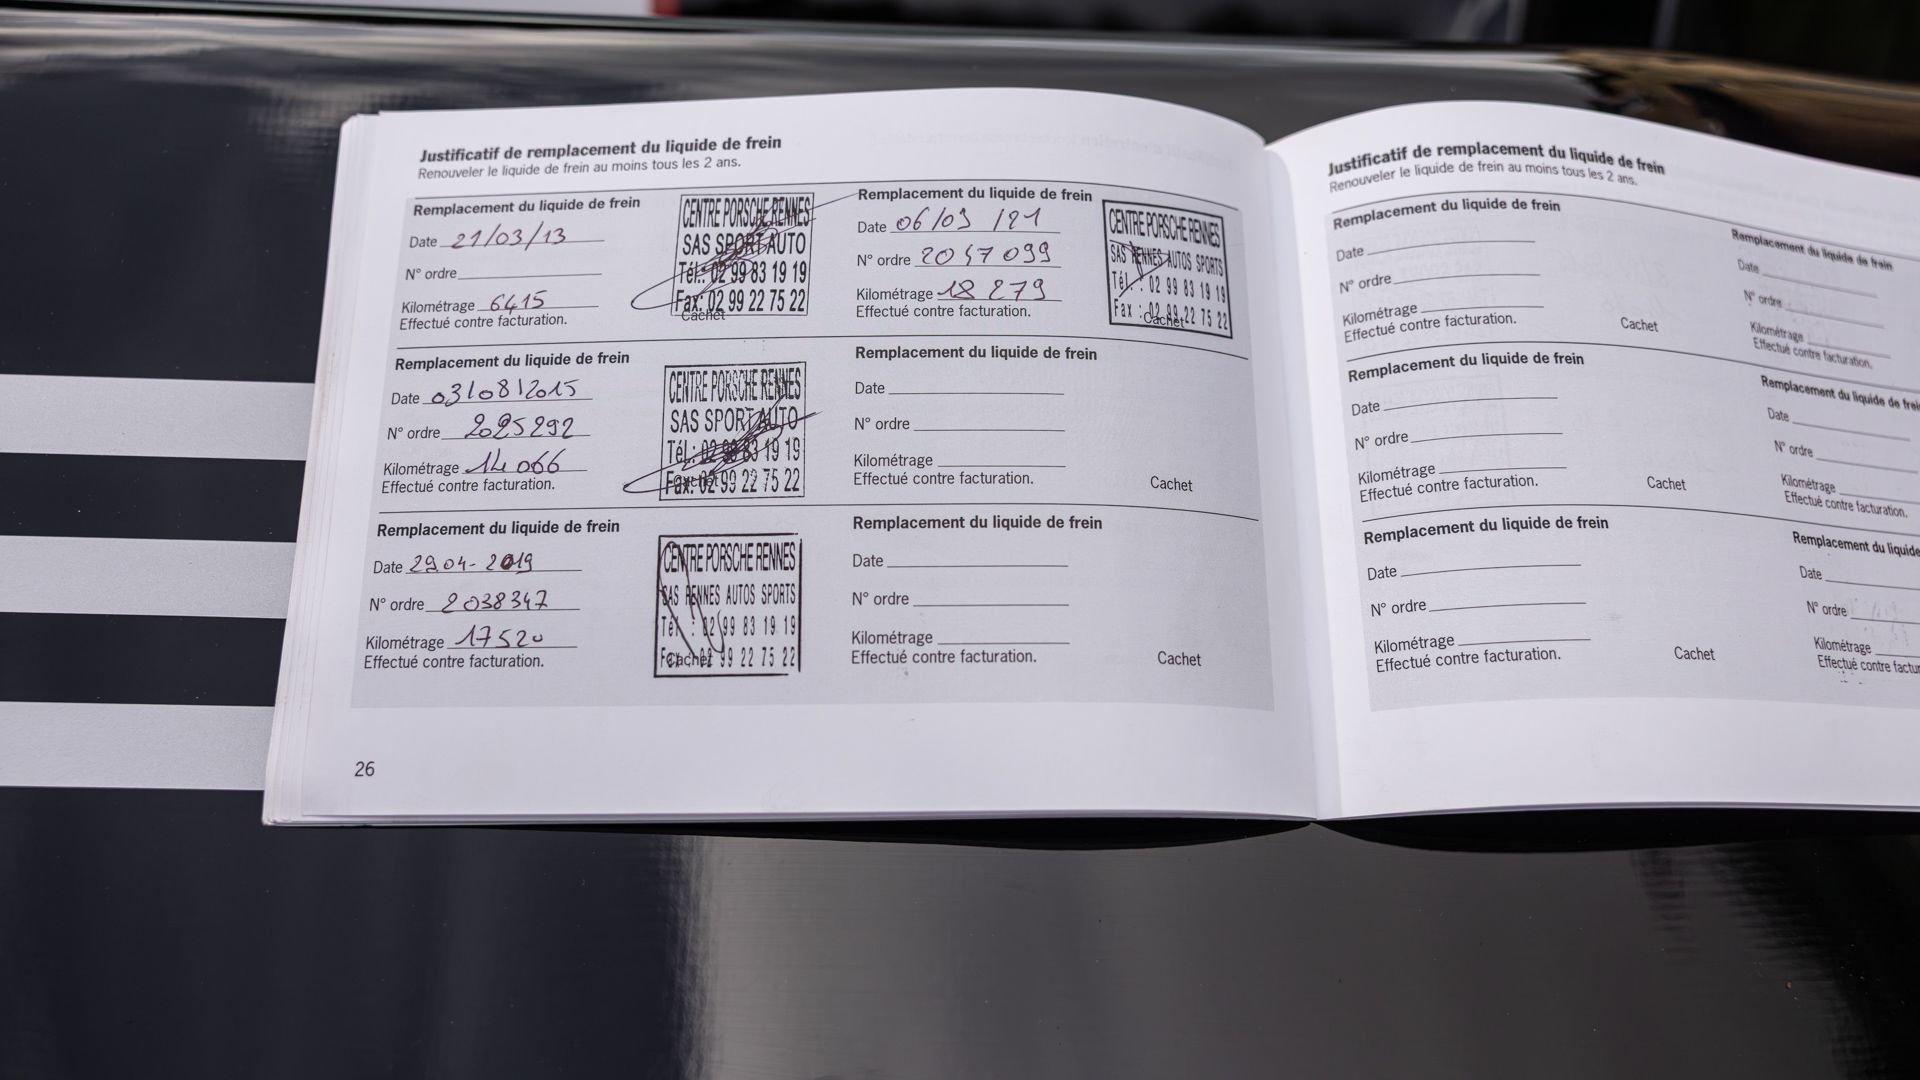 Justificatif de remplacement du liquide de frein
Renouveler le liquide de frein au moins tous les 2 ans.
Remplacement du liquide de frein
Date 21/03/13
N° ordre
Kilométrage 6415
Effectué contre facturation.
CENTRE PORSCHE RENNES
SAS SPORT AUTO
Tél.: 02 99 83 19 19
Fax: 02 99 22 75 22
Cachet
Remplacement du liquide de frein
Date 03/08/2015
N° ordre 2025292
Kilométrage 14 066
Effectué contre facturation.
CENTRE PORSCHE RENNES
SAS SPORT AUTO
Tél.: 02 99 83 19 19
Fax: 02 99 22 75 22
Cachet
Remplacement du liquide de frein
Date 29.04-2019
N° ordre 2038347
Kilométrage 17520
Effectué contre facturation.
CENTRE PORSCHE RENNES
SAS RENNES AUTOS SPORTS
Tél : 02 99 83 19 19
Fax : 02 99 22 75 22
Cachet
Remplacement du liquide de frein
Date 06/09/21
N° ordre 2047099
Kilométrage 18 279
Effectué contre facturation.
CENTRE PORSCHE RENNES
SAS RENNES AUTOS SPORTS
Tél. : 02 99 83 19 19
Fax : 02 99 22 75 22
Cachet
Remplacement du liquide de frein
Date
N° ordre
Kilométrage
Effectué contre facturation.
Cachet
Remplacement du liquide de frein
Date
N° ordre
Kilométrage
Effectué contre facturation.
Cachet
26
Justificatif de remplacement du liquide de frein
Renouveler le liquide de frein au moins tous les 2 ans.
Remplacement du liquide de frein
Date
N° ordre
Kilométrage
Effectué contre facturation.
Cachet
Remplacement du liquide de frein
Date
N° ordre
Kilométrage
Effectué contre facturation.
Cachet
Remplacement du liquide de frein
Date
N° ordre
Kilométrage
Effectué contre facturation.
Cachet
Remplacement du liquide de frein
Date
N° ordre
Kilométrage
Effectué contre facturation.
Remplacement du liquide de frei
Date
N° ordre
Kilométrage
Effectué contre facturation.
Remplacement du liquide
Date
N° ordre
Kilométrage
Effectué contre factur